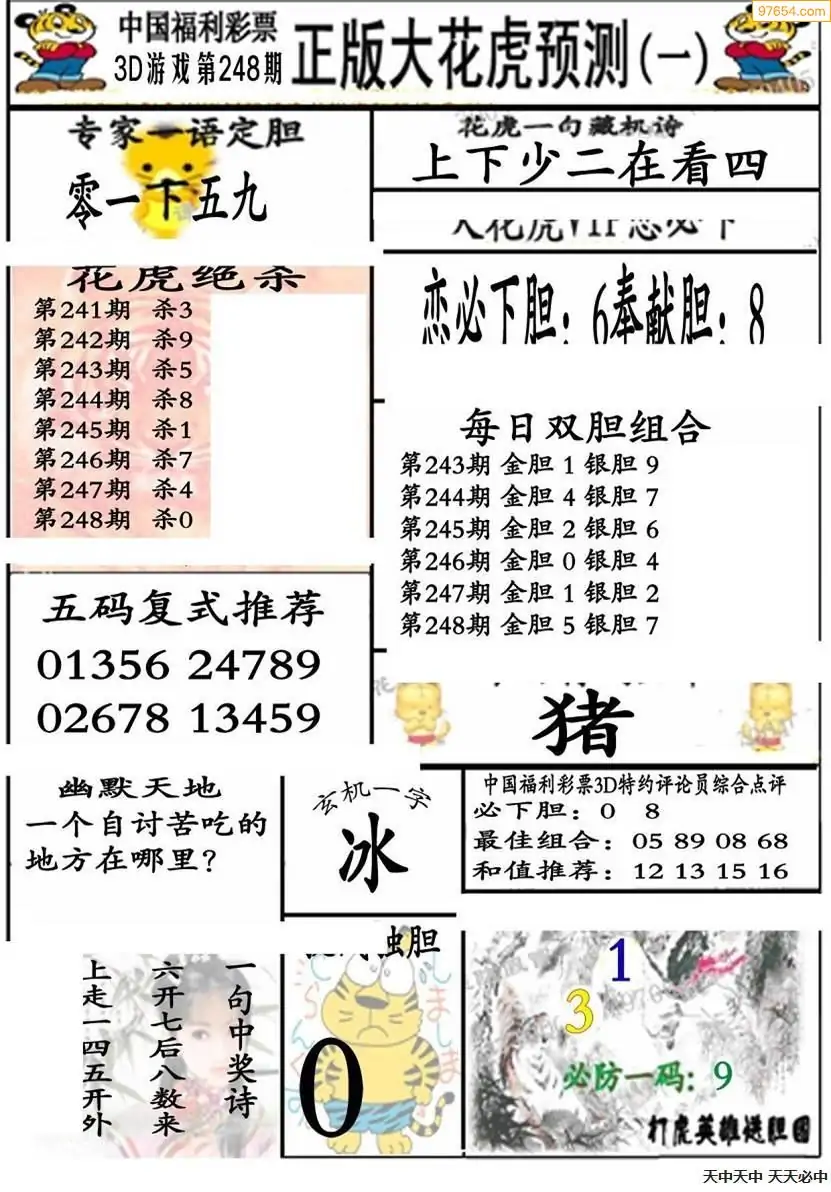 97654.com
中国福利彩票
3D游戏第248期
正版大花虎预测(一)
专家一语定胆
零一下五九
花虎一句藏机诗
上下少二在看四
大花虎VIP恋必下
恋必下胆：6奉献胆：8
花虎绝杀
第241期 杀3
第242期 杀9
第243期 杀5
第244期 杀8
第245期 杀1
第246期 杀7
第247期 杀4
第248期 杀0
每日双胆组合
第243期 金胆 1 银胆 9
第244期 金胆 4 银胆 7
第245期 金胆 2 银胆 6
第246期 金胆 0 银胆 4
第247期 金胆 1 银胆 2
第248期 金胆 5 银胆 7
五码复式推荐
01356 24789
02678 13459
猪
幽默天地
一个自讨苦吃的
地方在哪里？
玄机一字
冰
中国福利彩票3D特约评论员综合点评
必下胆：0 8
最佳组合：05 89 08 68
和值推荐：12 13 15 16
一句中奖诗
六开七后八数来
上走一四五开外
虫胆
0
1
3
必防一码：9
打虎英雄送胆图
天中天中 天天必中